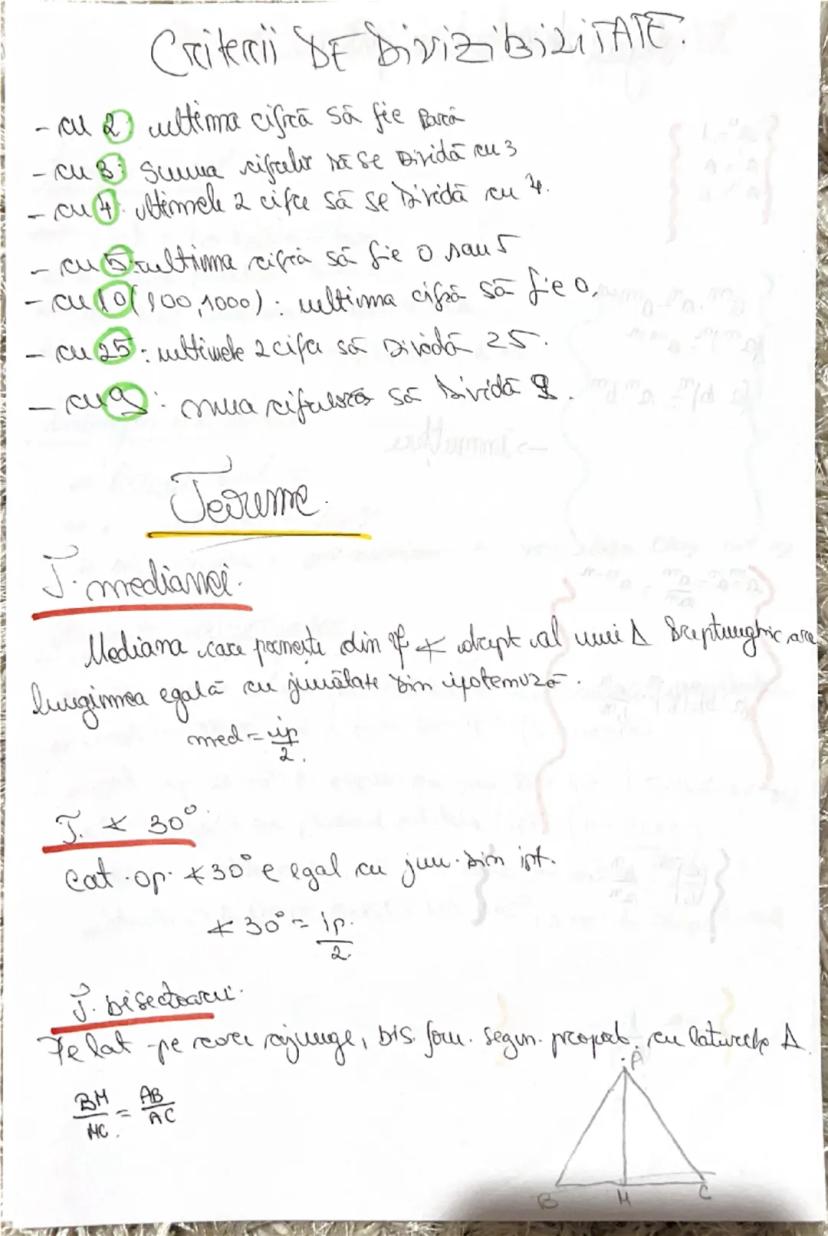 Criterii DE DiviziBiliTATE.
- cu 2 ultima cifră să fie pară
- cu 3: suma cifrelor să se dividă cu 3
- cu 4: ultimele 2 cifre să se dividă cu 4.
- cu 5: ultima cifră să fie 0 sau 5
- cu 10 (100, 1000): ultima cifră să fie 0.
- cu 25: ultimele 2 cifre să dividă 25.
- cu 9: suma cifrelor să dividă 9.
Teoreme.
T. medianei.
Mediana care pornește din vf ∢ drept al unui Δ dreptunghic are
lungimea egală cu jumătate din ipotenuză.
med = ip/2.
T. ∢ 30°
Cat. op. ∢30° e egal cu jum. din ipt.
∢ 30° = ip./2
T. bisectoarei.
Pe lat pe care ajunge, bis. form. segm. proport. cu laturile Δ
BM/MC. = AB/AC
A
B M C